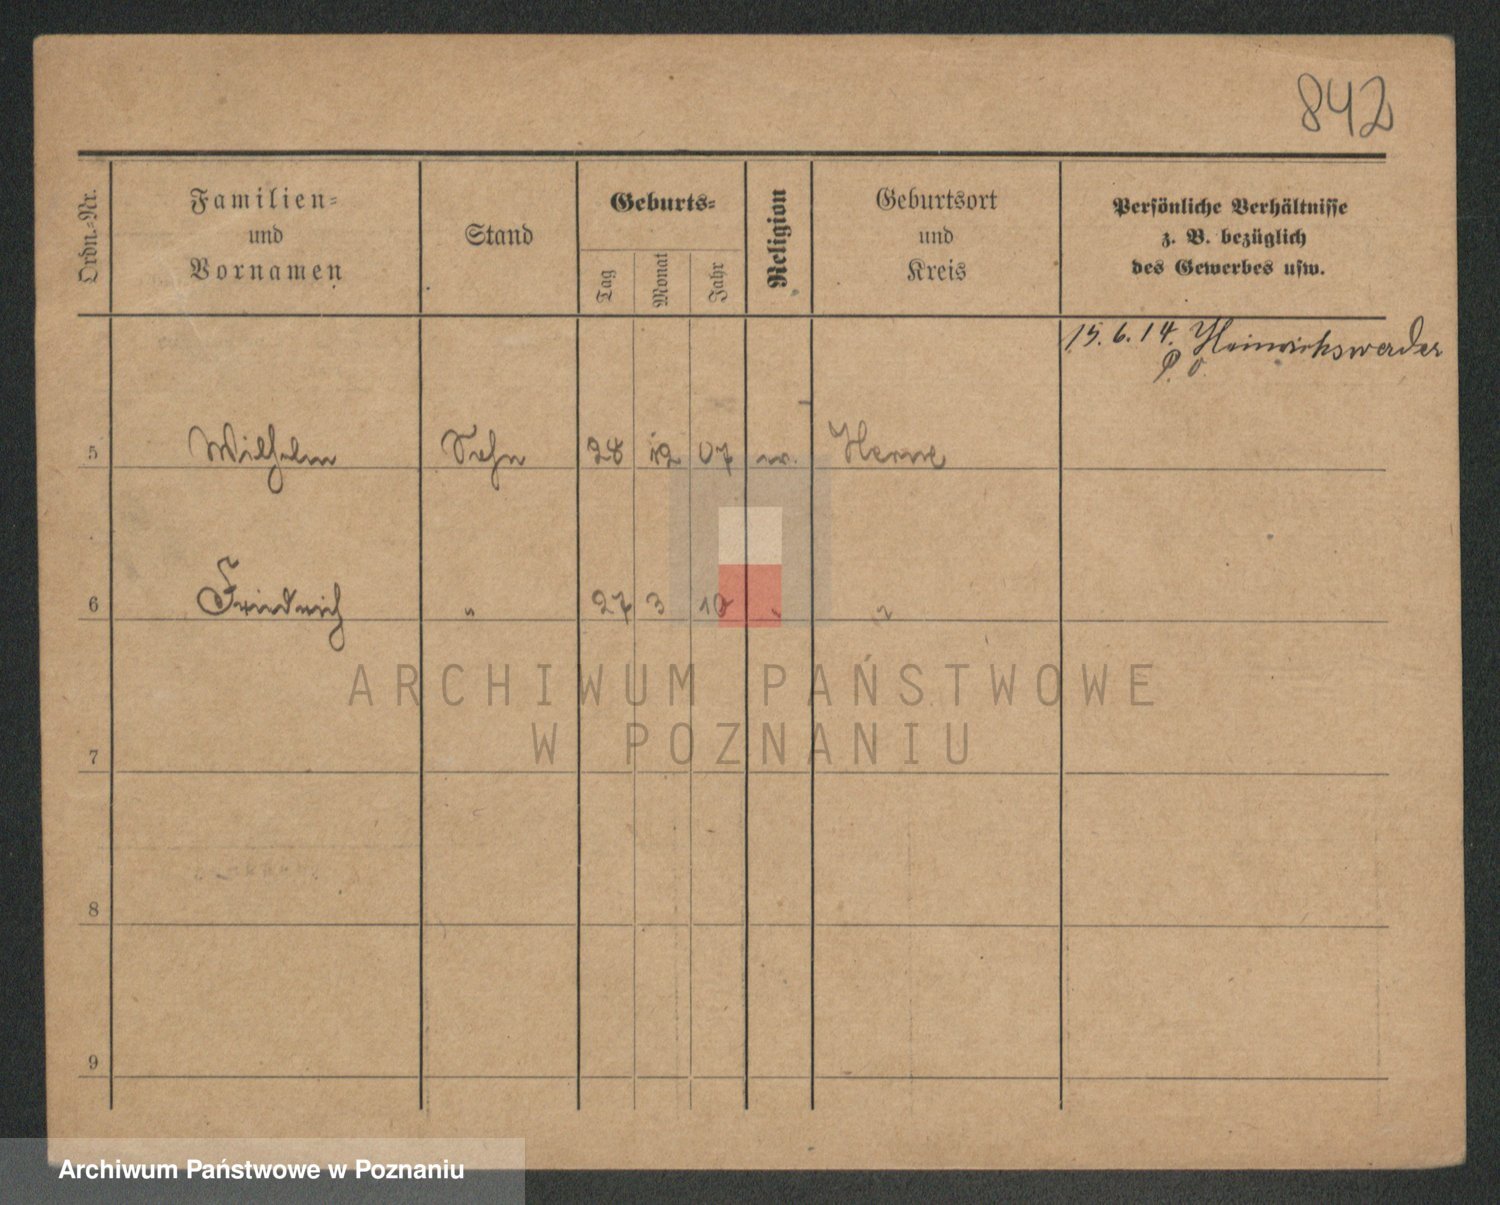 842
Ordn.-Nr.
Familien-
und
Vornamen
Stand
Geburts-
Tag
Monat
Jahr
Religion
Geburtsort
und
Kreis
Persönliche Verhältnisse
z. B. bezüglich
des Gewerbes usw.
15. 6. 14. Heinrichswerder
P. O.
5 Wilhelm Sohn 28 12 07 ev. Herne
6 Friedrich " 27 3 10 " "
ARCHIWUM PAŃSTWOWE
W POZNANIU
7
8
9
Archiwum Państwowe w Poznaniu